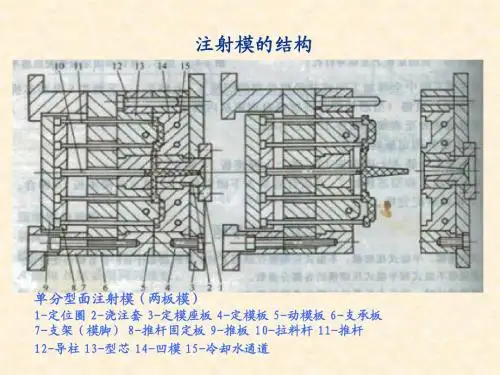 注射模的结构
10 11 12 13 14 15
9 8 7 6 5 4 3 2 1
单分型面注射模（两板模）
1-定位圈 2-浇注套 3-定模座板 4-定模板 5-动模板 6-支承板
7-支架（模脚） 8-推杆固定板 9-推板 10-拉料杆 11-推杆
12-导柱 13-型芯 14-凹模 15-冷却水通道